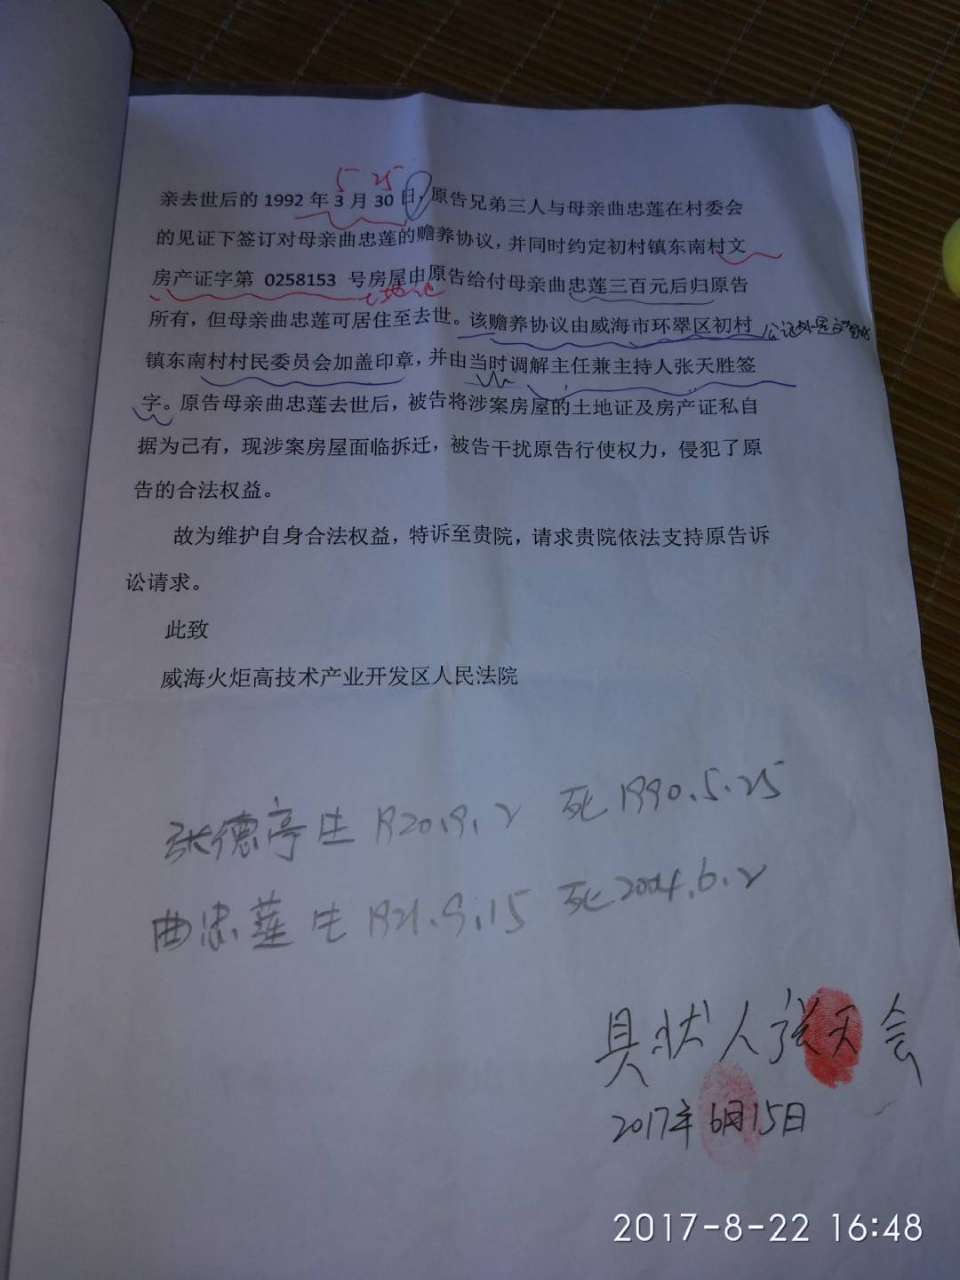 5 25
亲去世后的 1992 年 3 月 30 日，原告兄弟三人与母亲曲忠莲在村委会
的见证下签订对母亲曲忠莲的赡养协议，并同时约定初村镇东南村文
房产证字第 0258153 号房屋由原告给付母亲曲忠莲三百元后归原告
所有，但母亲曲忠莲可居住至去世。该赡养协议由威海市环翠区初村
镇东南村村民委员会加盖印章，并由当时调解主任兼主持人张天胜签
字。原告母亲曲忠莲去世后，被告将涉案房屋的土地证及房产证私自
据为己有，现涉案房屋面临拆迁，被告干扰原告行使权力，侵犯了原
告的合法权益。
故为维护自身合法权益，特诉至贵院，请求贵院依法支持原告诉
讼请求。
此致
威海火炬高技术产业开发区人民法院
张德亭生 1920.9.2 死 1990.5.25
曲忠莲生 1921.9.15 死 2004.6.2
具状人张天会
2017年6月15日
2017-8-22 16:48